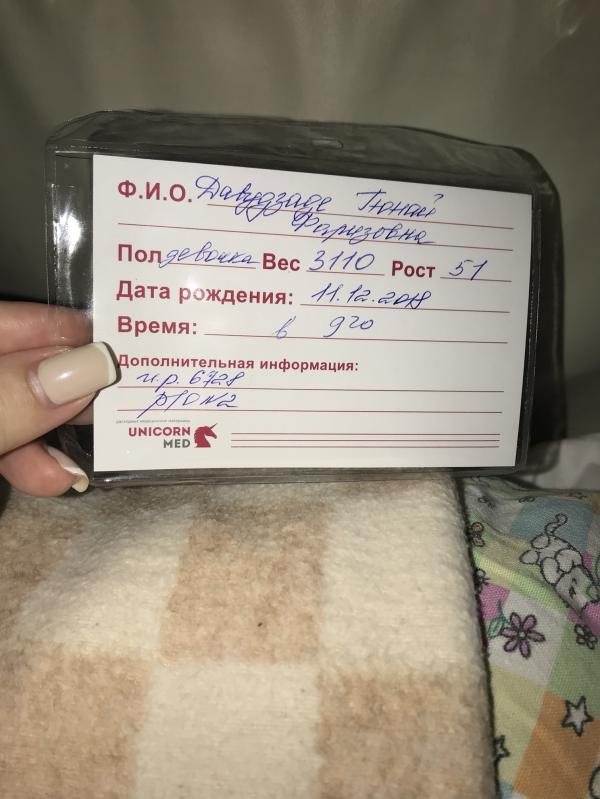 Ф.И.О. Давудзаде Гюнай
Фаризовна
Пол девочка Вес 3110 Рост 51
Дата рождения: 11.12.2018
Время: в 9²⁰
Дополнительная информация:
и.р. 6728
р/о №2
расходные медицинские материалы
UNICORN
MED